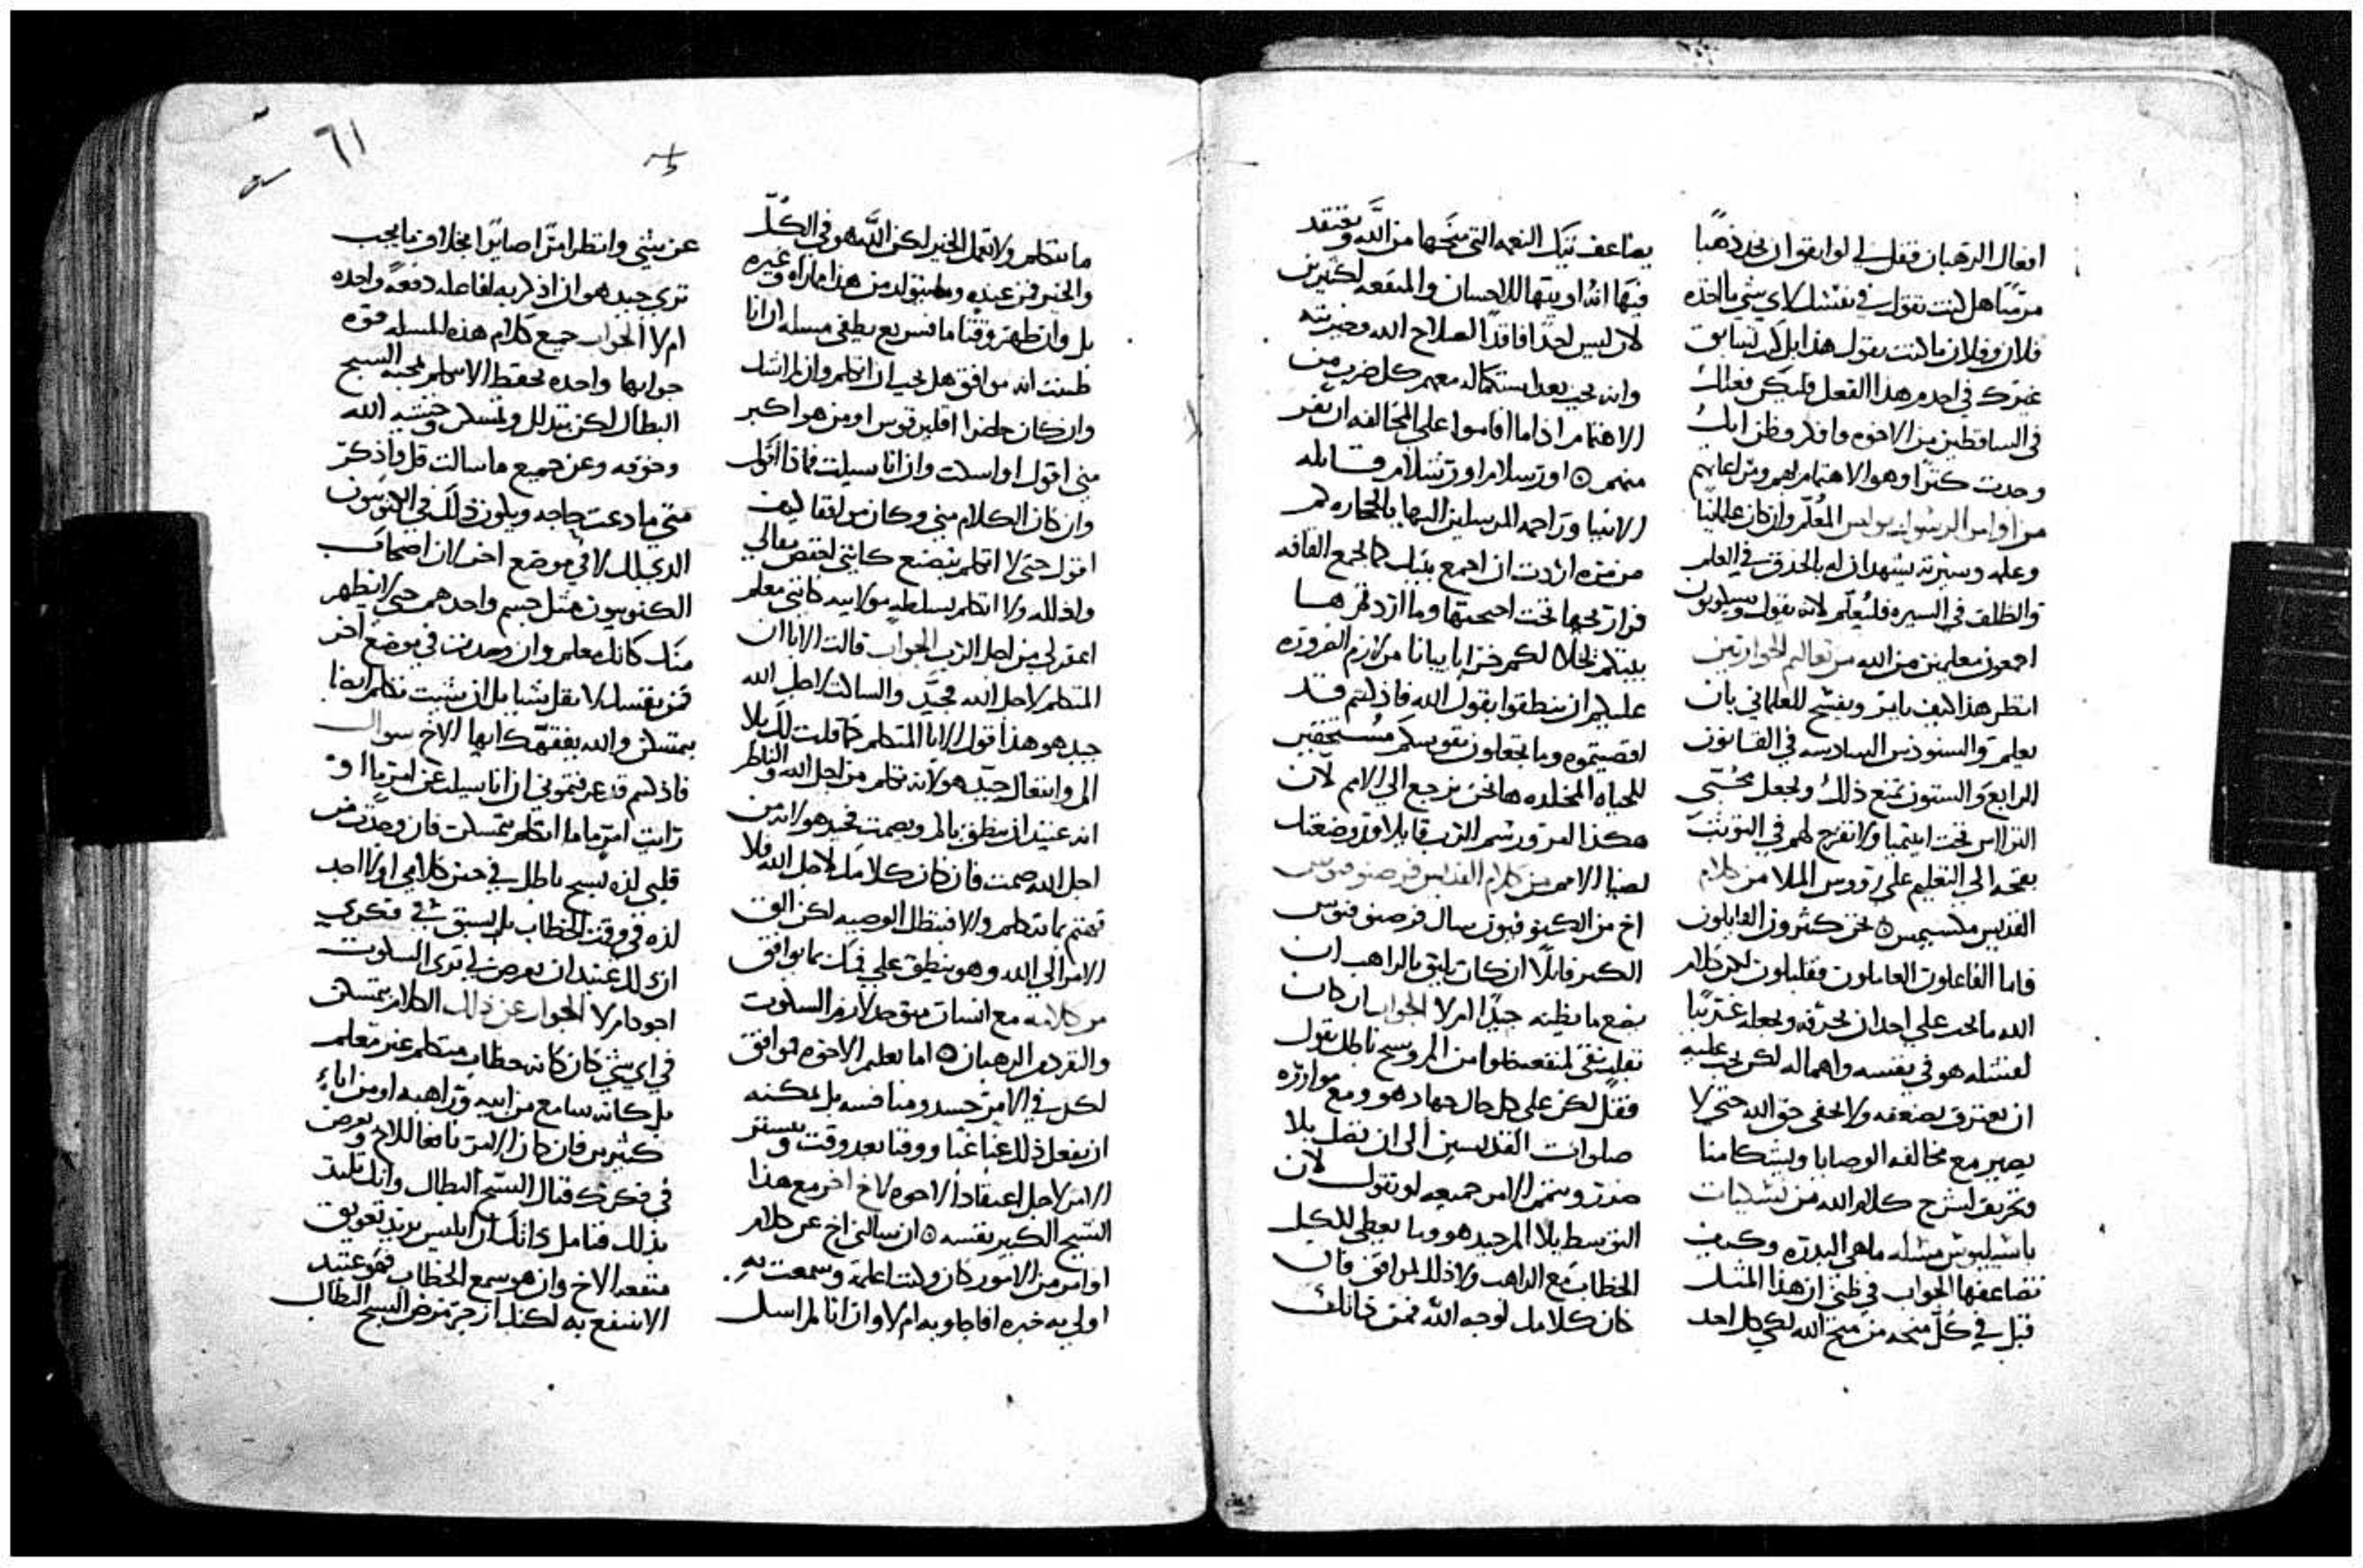 افعال الرهبان فقل لي لو اتفق ان تجد ذهبًا
مرميًا هل كنت تقول في نفسك لاي شي ما اخذه
فلان وفلان ما كنت تقول هذا بل كنت تسابق
غيرك في اخده هذا الفعل فليكن فعلك
في الساقطين من الاخوه وافكر وظن انك
وجدت كنزًا وهو الاهتمام بهم ومراعاتهم
من اوامر الرسول بولس المعلم وان كان عالميًا
وعلمه وسيرته يشهدان له بالحذق في العلم
والطلق في السيره فليعلم لانه يقول وسيكونون
اجمعون معلمين من الله من تعاليم الحواريين
انظر هذا كيف يامر ويفسح للعلماني بان
يعلم والسنودس السادسه في القانون
الرابع والستون تمنع ذلك وتجعل
بفتحه الي التعليم علي رووس الملا من كلام
القديس مكسيمس نحن كثيرون القايلون
فاما الفاعلون العاملون فقليلون لكن كلام
الله ما يجب علي احد ان يحرفه ويجعله غريبًا
لفشله هو في نفسه واهماله لكن يجب عليه
ان يعترف بضعفه ولا يخفي حق الله حتي لا
يصير مع مخالفه الوصايا
وتحريف لشرح كلام الله من
باسيليوس مسله ماهي البدره وكيف
تضاعفها الجواب في ظني ان هذا المثل
قيل في كل منحه من منح الله لكي كل احد
يضاعف تيك النعمه التي منحها من الله ويفتقد
فيها انه اوتيها للاحسان والمنفعه لكثيرين
لان ليس احدًا فاقدًا لصلاح الله وخيريته
وانه يجب بعد استكماله معهم كل ضرب من
الاهتمام اذا ما اقاموا علي المخالفه ان يفر
منهم اورشلام اورشلام قاتله
الانبيا وراجمه المرسلين اليها بالحجاره كم
من مره اردت ان اجمع بنيك كما تجمع الفاقه
فراريجها تحت اجنحتها وما اردتم ها
بيتكم يخلا لكم خرابًا
عليكم ان ينطقوا بقول الله فاذ كنتم قد
اقصيتموه وما تجعلون نفوسكم مستحقين
للحياه المخلده ها نحن نرجع الي الامم لان
هكذا امر ورسم الرب قايلا قد وضعتك
لضيا الامم من كلام القديس فرصنوفيوس
اخ من الكينوفيون سال فرصنوفيوس
الكبير قايلًا ان كان يليق بالراهب ان
يصنع ما يظنه جيدًا ام لا الجواب ان كان
فقل لكن علي كل حال جهاد هو ومع موازره
صلوات القديسين الي ان تصل بلا
ضرر وتتمم الامر جميعه لو تقول لان
التوسط بلا المر جيد هو وما يعطي للكل
الخطاب مع الراهب ولا ذلك موافق فان
كان كلامك لوجه الله
٦١
ما تتكلم ولا تعمل الخير لكن الله هو في الكل
والخير فمن عنده وما يتولد من هذا ما نراه وغيره
بل وان ظهر وقتًا ما فسريع يطفي مسله ان انا
ظننت انه موافق هل يجب ان اتكلم وان لم اسل
وان كان حاضرا اقليريقوس او من هو اكبر
مني اقول او اسكت وان انا سيلت فماذا اقول
وان كان الكلام مني وكان موافقا كيف
اقول حتي لا اتكلم بتصنع كانني اخفض مقالي
واذلله ولا اتكلم بسلطه مولانيه كانني معلم
اغفر لي من اجل الرب الجواب قالت الابا ان
المتكلم لاجل الله مجيد والساكت لاجل الله
جيد هو هذا قول الابا المتكلم كما قلت لك بلا
الم وانفعال جيد هو لانه تكلم من اجل الله والناظر
انه عتيد ان ينطق بالم ويصمت فجيد هو لانه من
اجل الله صمت فان كان كلامك لاجل الله فلا
تهتم بما تتكلم والا فتبطل الوصيه لكن الق
الامر الي الله وهو ينطق علي فيك بما يوافق
من كلامه مع انسان متوحد لازم السكوت
والتفرد من الرهبان اما تعلم الاخوه لموافق
لكل في الامر حسد ومنافسه بل يمكنه
ان يفعل ذلك غبًا غبًا ووقتا بعد وقت ويستر
الامر لاجل اعتقاد الاخوه لاخ اخر مع هذا
الشيخ الكبير نفسه ان سالني اخ عن كلام
او امر من الامور كان وكنت اعلمه وسمعت به
اولي به خبره افاجاوبه ام لا وان انا لم اسل
عن شي وانظر امرًا صايرًا بخلاف ما يجب
تري جيد هو ان اذكر به لفاعله دفعه واحده
ام لا الجواب جميع كلام هذه المسله قوه
جوابها واحده تحفظ الا تتكلم لمحبه السبح
البطال لكن بتذلل وتمسكن وخشيه الله
وخوفه وعن جميع ما سالت قل واذكر
متي ما دعت حاجه ويكون ذلك في الكنوبيون
الذي لك لا في موضع اخر لان اصحاب
الكنوبيون مثل جسم واحد هم حتي لا تظهر
منك كانك معلم وان وجدت في موضع اخر
فمن نفسك لا تقل شيا بل ان سيلت تكلم ايضا
بتمسكن والله يفقهك ايها الاخ سوال
فاذ كنتم قد عرفتموني ان انا سيلت عن امر ما او
رايت امرًا ما اتكلم بتمسكن فان وجدت في
قلبي لذه سبح باطل في حين كلامي او لا اجد
لذه في وقت الخطاب بل يسبق شي في فكري
ان ذلك عتيد ان يعرض لي تري السكوت
اجود ام لا الجواب عن ذلك الكلام بتمسكن
في اي شي كان كانه خطاب متكلم غير معلم
بل كانه سامع من ابيه وراهبه او من اباء
كثيرين فان كان الامر نافعا للاخ وتعرض
في فكرك قتال السبح البطال وانك تلتذ
بذلك فتامل كانك ان ابليس يريد تعويق
منفعه الاخ وان هو سمع الخطاب فهو عتيد
الانتفع به لكنك ازجر مرض السبح البطال